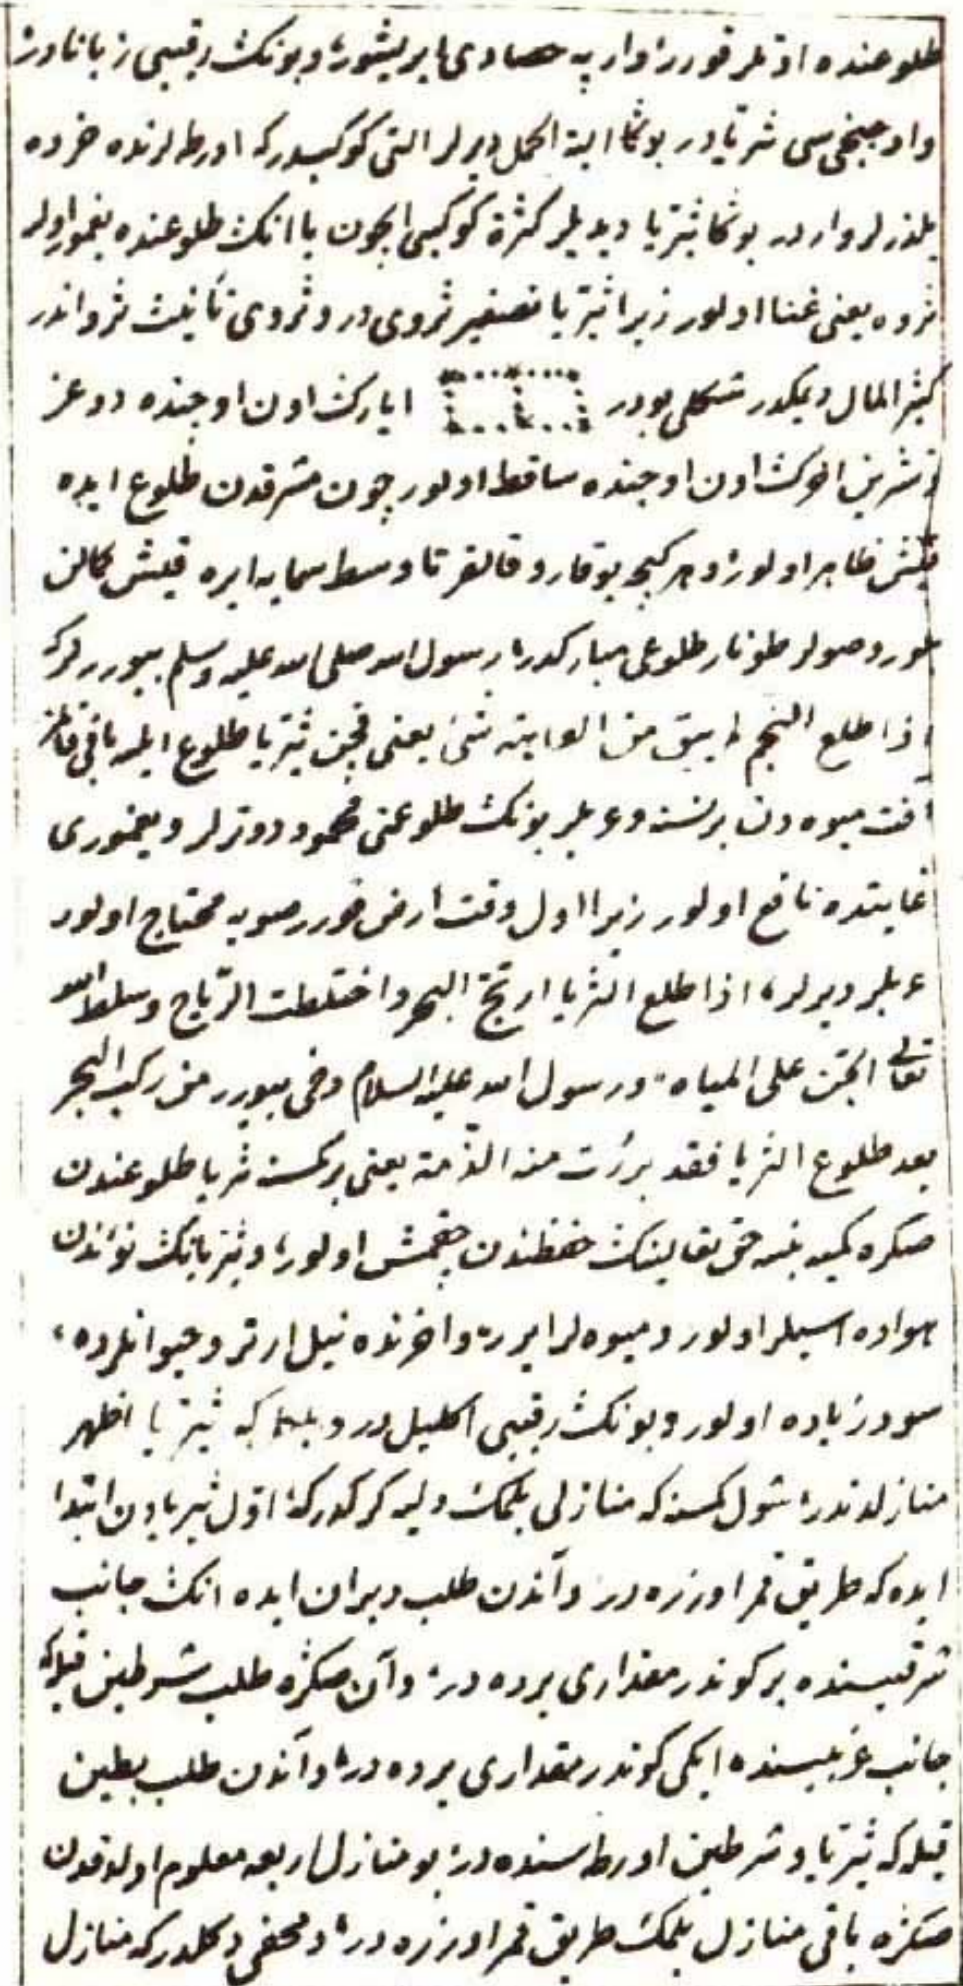 طلوعنده اوتلر قورر وارپه حصادی ایریشور وبونك رقیبی زبانادر
واوچنجی سی ثریادر بوڭا الیة الحمل دیرلر التی كوكبدر كه اورطه لرنده خرده
یلدزلر واردر بوڭا ثریا دیدیلر كثرة كوكبی ایچون یا انك طلوعنده یغمور اولر
ثروه یعنی غنا اولور زیرا ثریا تصغیر ثروی در وثروی تأنیث ثرواندر
كثیر المال دیمكدر شكلی بودر ایارك اون اوچنده دوغر
وتشرین الاخرك اون اوچنده ساقط اولور چون مشرقدن طلوع ایده
قیش ظاهر اولور وهر كیجه یوقارو قالقر تا وسط سمایه ایره قیش كالن
بلور وصولر طوڭار طلوعی مباركدر رسول الله صلی الله علیه وسلم بیوررلركه
اذا طلع النجم لم یبق من العاهة شئ یعنی قچن ثریا طلوع ایلر باقی قالمز
آفت میوه دن برنسنه وعربلر بونك طلوعنی محمود دوترلر ویغموری
غایتده نافع اولور زیرا اول وقت ارض قورر صویه محتاج اولور
عربلر دیرلر اذا طلع الثریا ارتج البحر واختلطت الریاح وسلط الله
تعالی الجن علی المیاه ورسول الله علیه السلام دخی بیورر من ركب البحر
بعد طلوع الثریا فقد برئت منه الذمة یعنی بركسنه ثریا طلوعندن
صكره كمیه بنسه حق تعالینك حفظندن چقمش اولور وثریانك نوئندن
هواده سیلر اولور ومیوه لر ایرر واخرنده نیل ارتر وحیوانلرده
سود زیاده اولور وبونك رقیبی اكلیل در وبلكه ثریا اظهر
منازلدندر شول كسنه كه منازلی بلمك دلیه كركدر كه اول ثریادن ابتدا
ایده كه طریق قمر اوزره در وآندن طلب دبران ایده انك جانب
شرقیسنده بر كوندر مقداری یرده در وآندن صكره طلب شرطین قیله
جانب غربیسنده ایكی كوندر مقداری یرده در وآندن طلب بطین
قیله كه ثریا وشرطین اورطه سنده در بو منازل اربعه معلوم اولدقدن
صكره باقی منازل بلمك طریق قمر اوزره در ومخفی دكلدر كه منازل